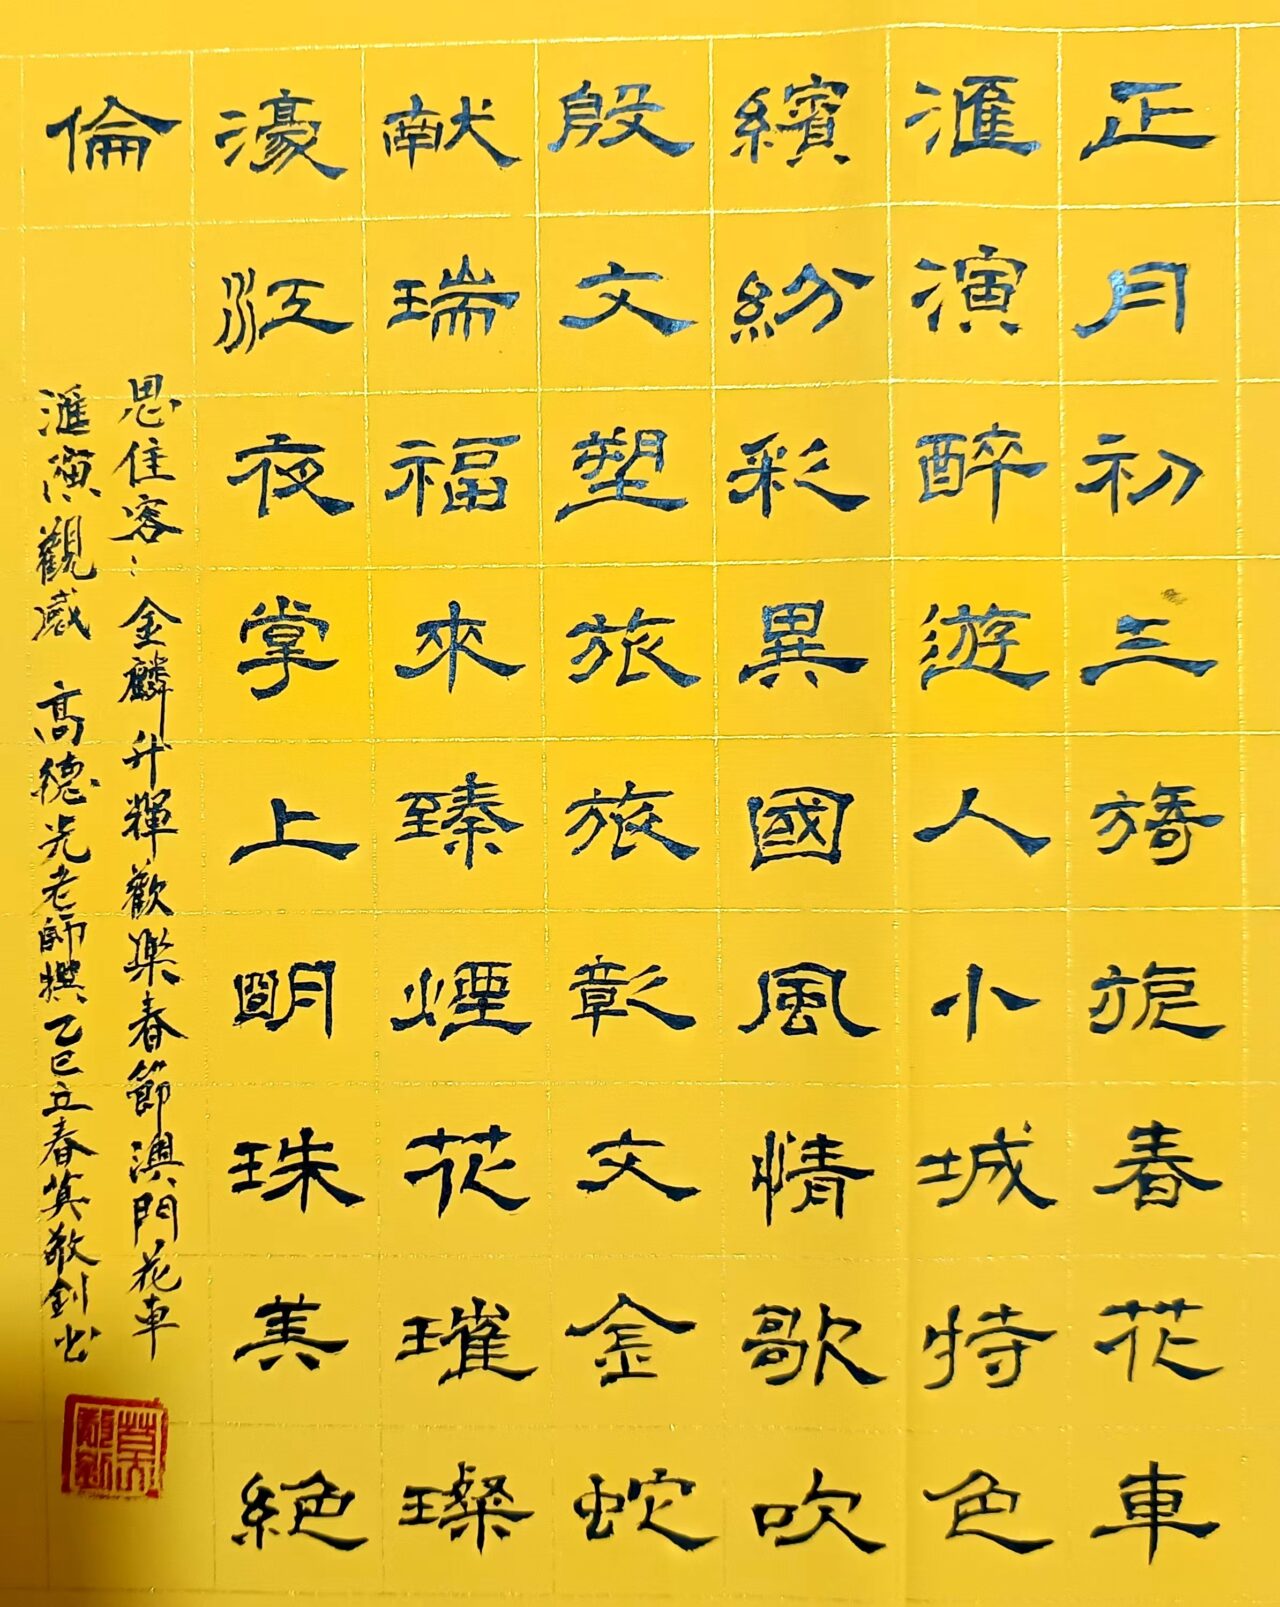 正月初三旖旎春花車
滙演醉遊人小城特色
繽紛彩異國風情歌吹
殷文塑旅旅彰文金蛇
献瑞福來臻煙花璀璨
濠江夜掌上明珠美絕
倫
思佳客：金麟升輝歡樂春節澳門花車
滙演觀感 高德光老師撰乙巳立春莫敬釗書